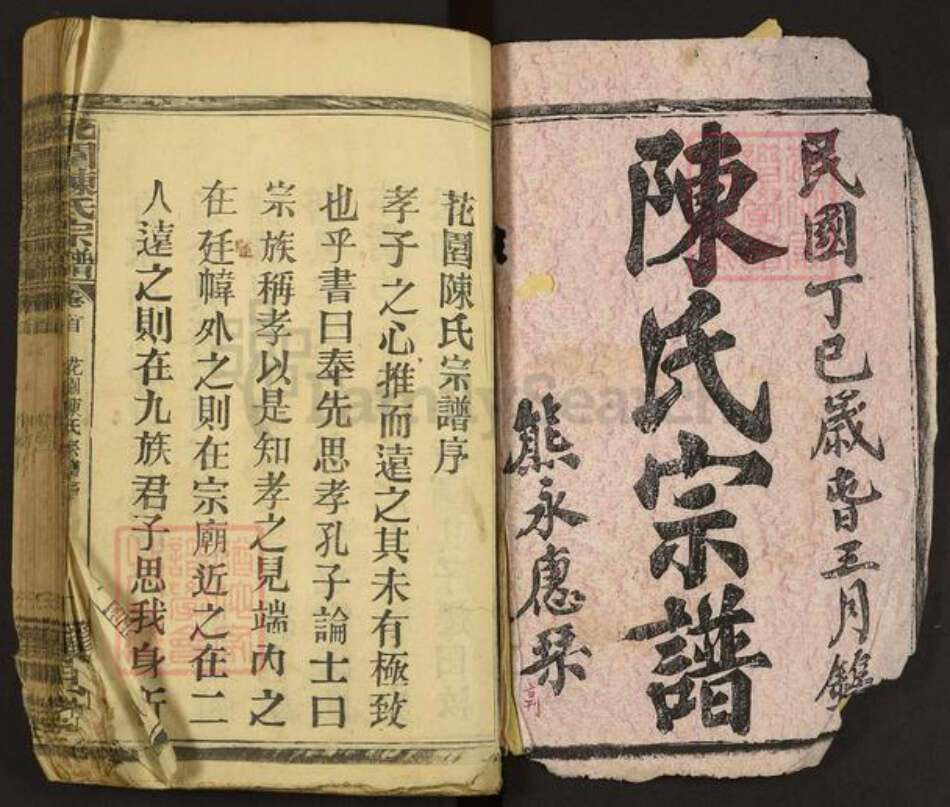 民國丁巳歲春三月鐫
陳氏宗譜
熊永應琹
刊
花園陳氏宗譜序
孝子之心推而遠之其未有極致
也乎書曰奉先思孝孔子論士曰
宗族稱孝以是知孝之見端內之
在廷幃外之則在宗廟近之在二
人遠之則在九族君子思我身所
花園陳氏宗譜 卷首 花園陳氏宗譜序
FamilySearch